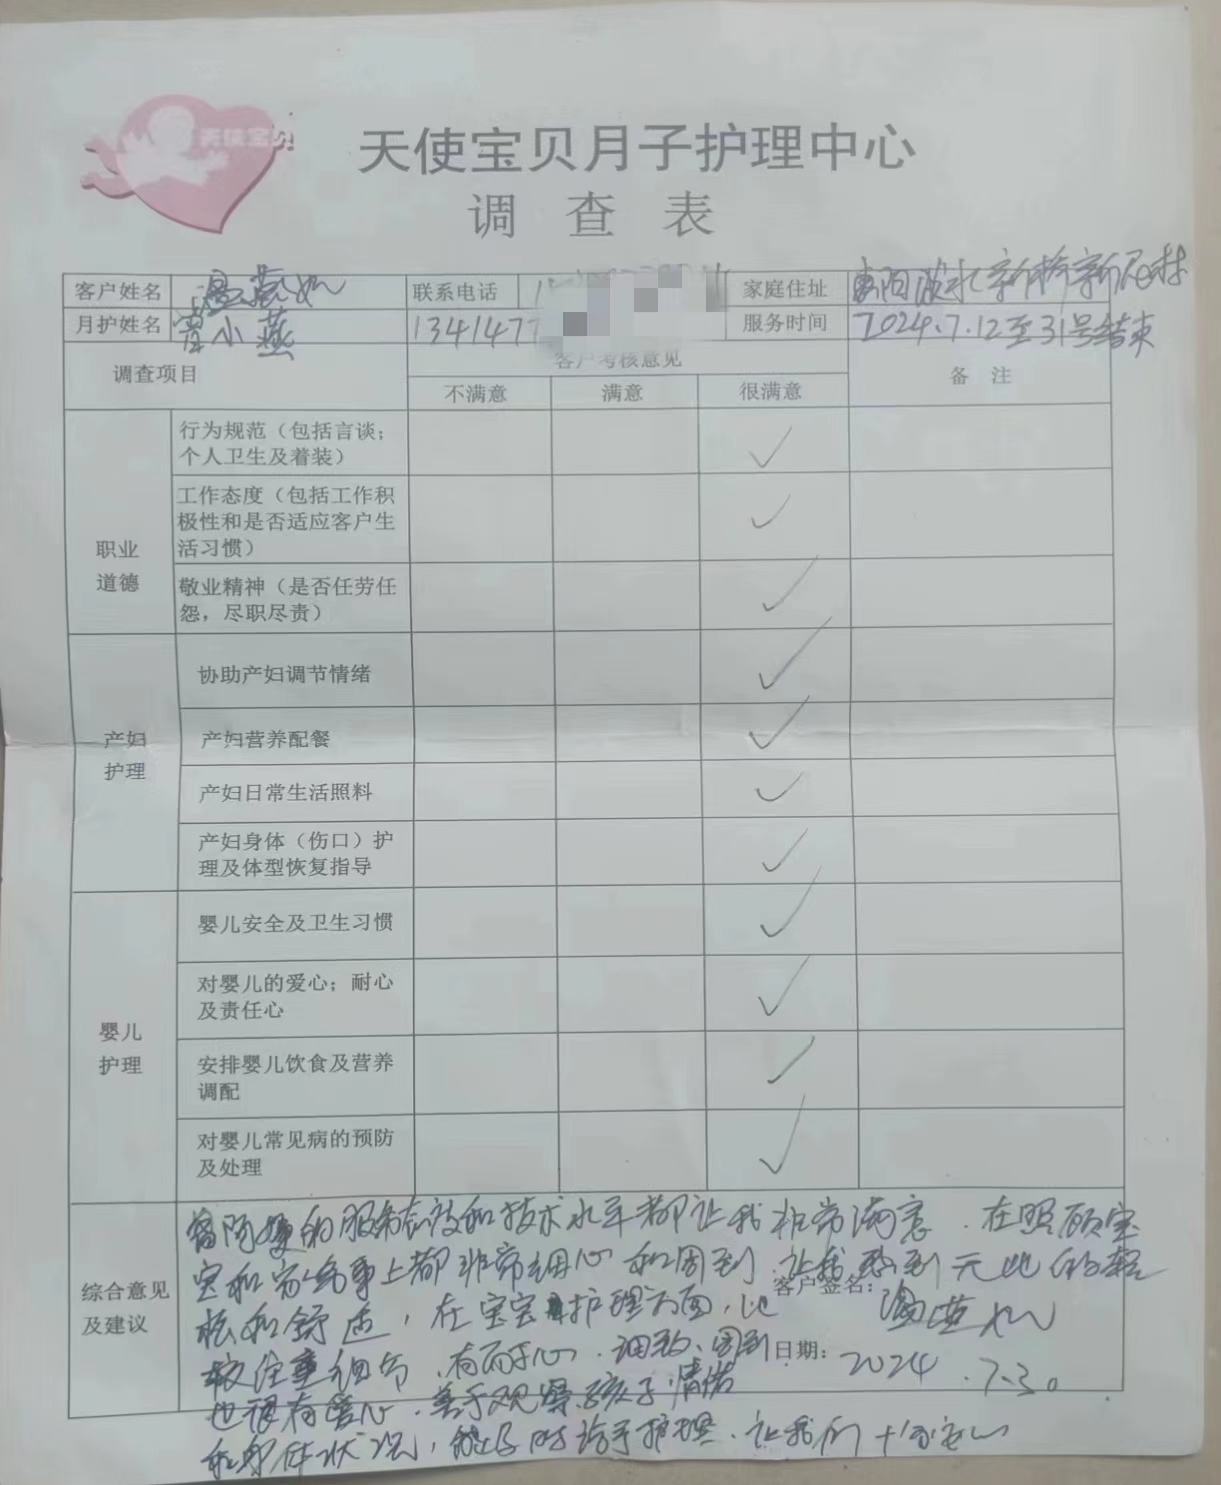 天使宝贝
天使宝贝月子护理中心
调查表
客户姓名 温燕如 联系电话 1 家庭住址
月护姓名 曾小燕 1341477 服务时间 2024.7.12至31号结束
调查项目 客户考核意见 备注
不满意 满意 很满意
职业道德
行为规范（包括言谈；
个人卫生及着装） ✓
工作态度（包括工作积
极性和是否适应客户生
活习惯） ✓
敬业精神（是否任劳任
怨，尽职尽责） ✓
产妇护理
协助产妇调节情绪 ✓
产妇营养配餐 ✓
产妇日常生活照料 ✓
产妇身体（伤口）护
理及体型恢复指导 ✓
婴儿护理
婴儿安全及卫生习惯 ✓
对婴儿的爱心；耐心
及责任心 ✓
安排婴儿饮食及营养
调配 ✓
对婴儿常见病的预防
及处理 ✓
综合意见
及建议
曾阿姨的服务态度和技术水平都让我非常满意．在照顾宝
宝和家务事上都非常细心和周到．让我感到无比的轻
松和舒适，在宝宝护理方面，比
较注重细节．有耐心．细致、周到
也很有爱心．善于观察孩子情绪
和身体状况，能及时给予护理．让我们十分安心
客户签名： 温燕如
日期： 2024.7.30